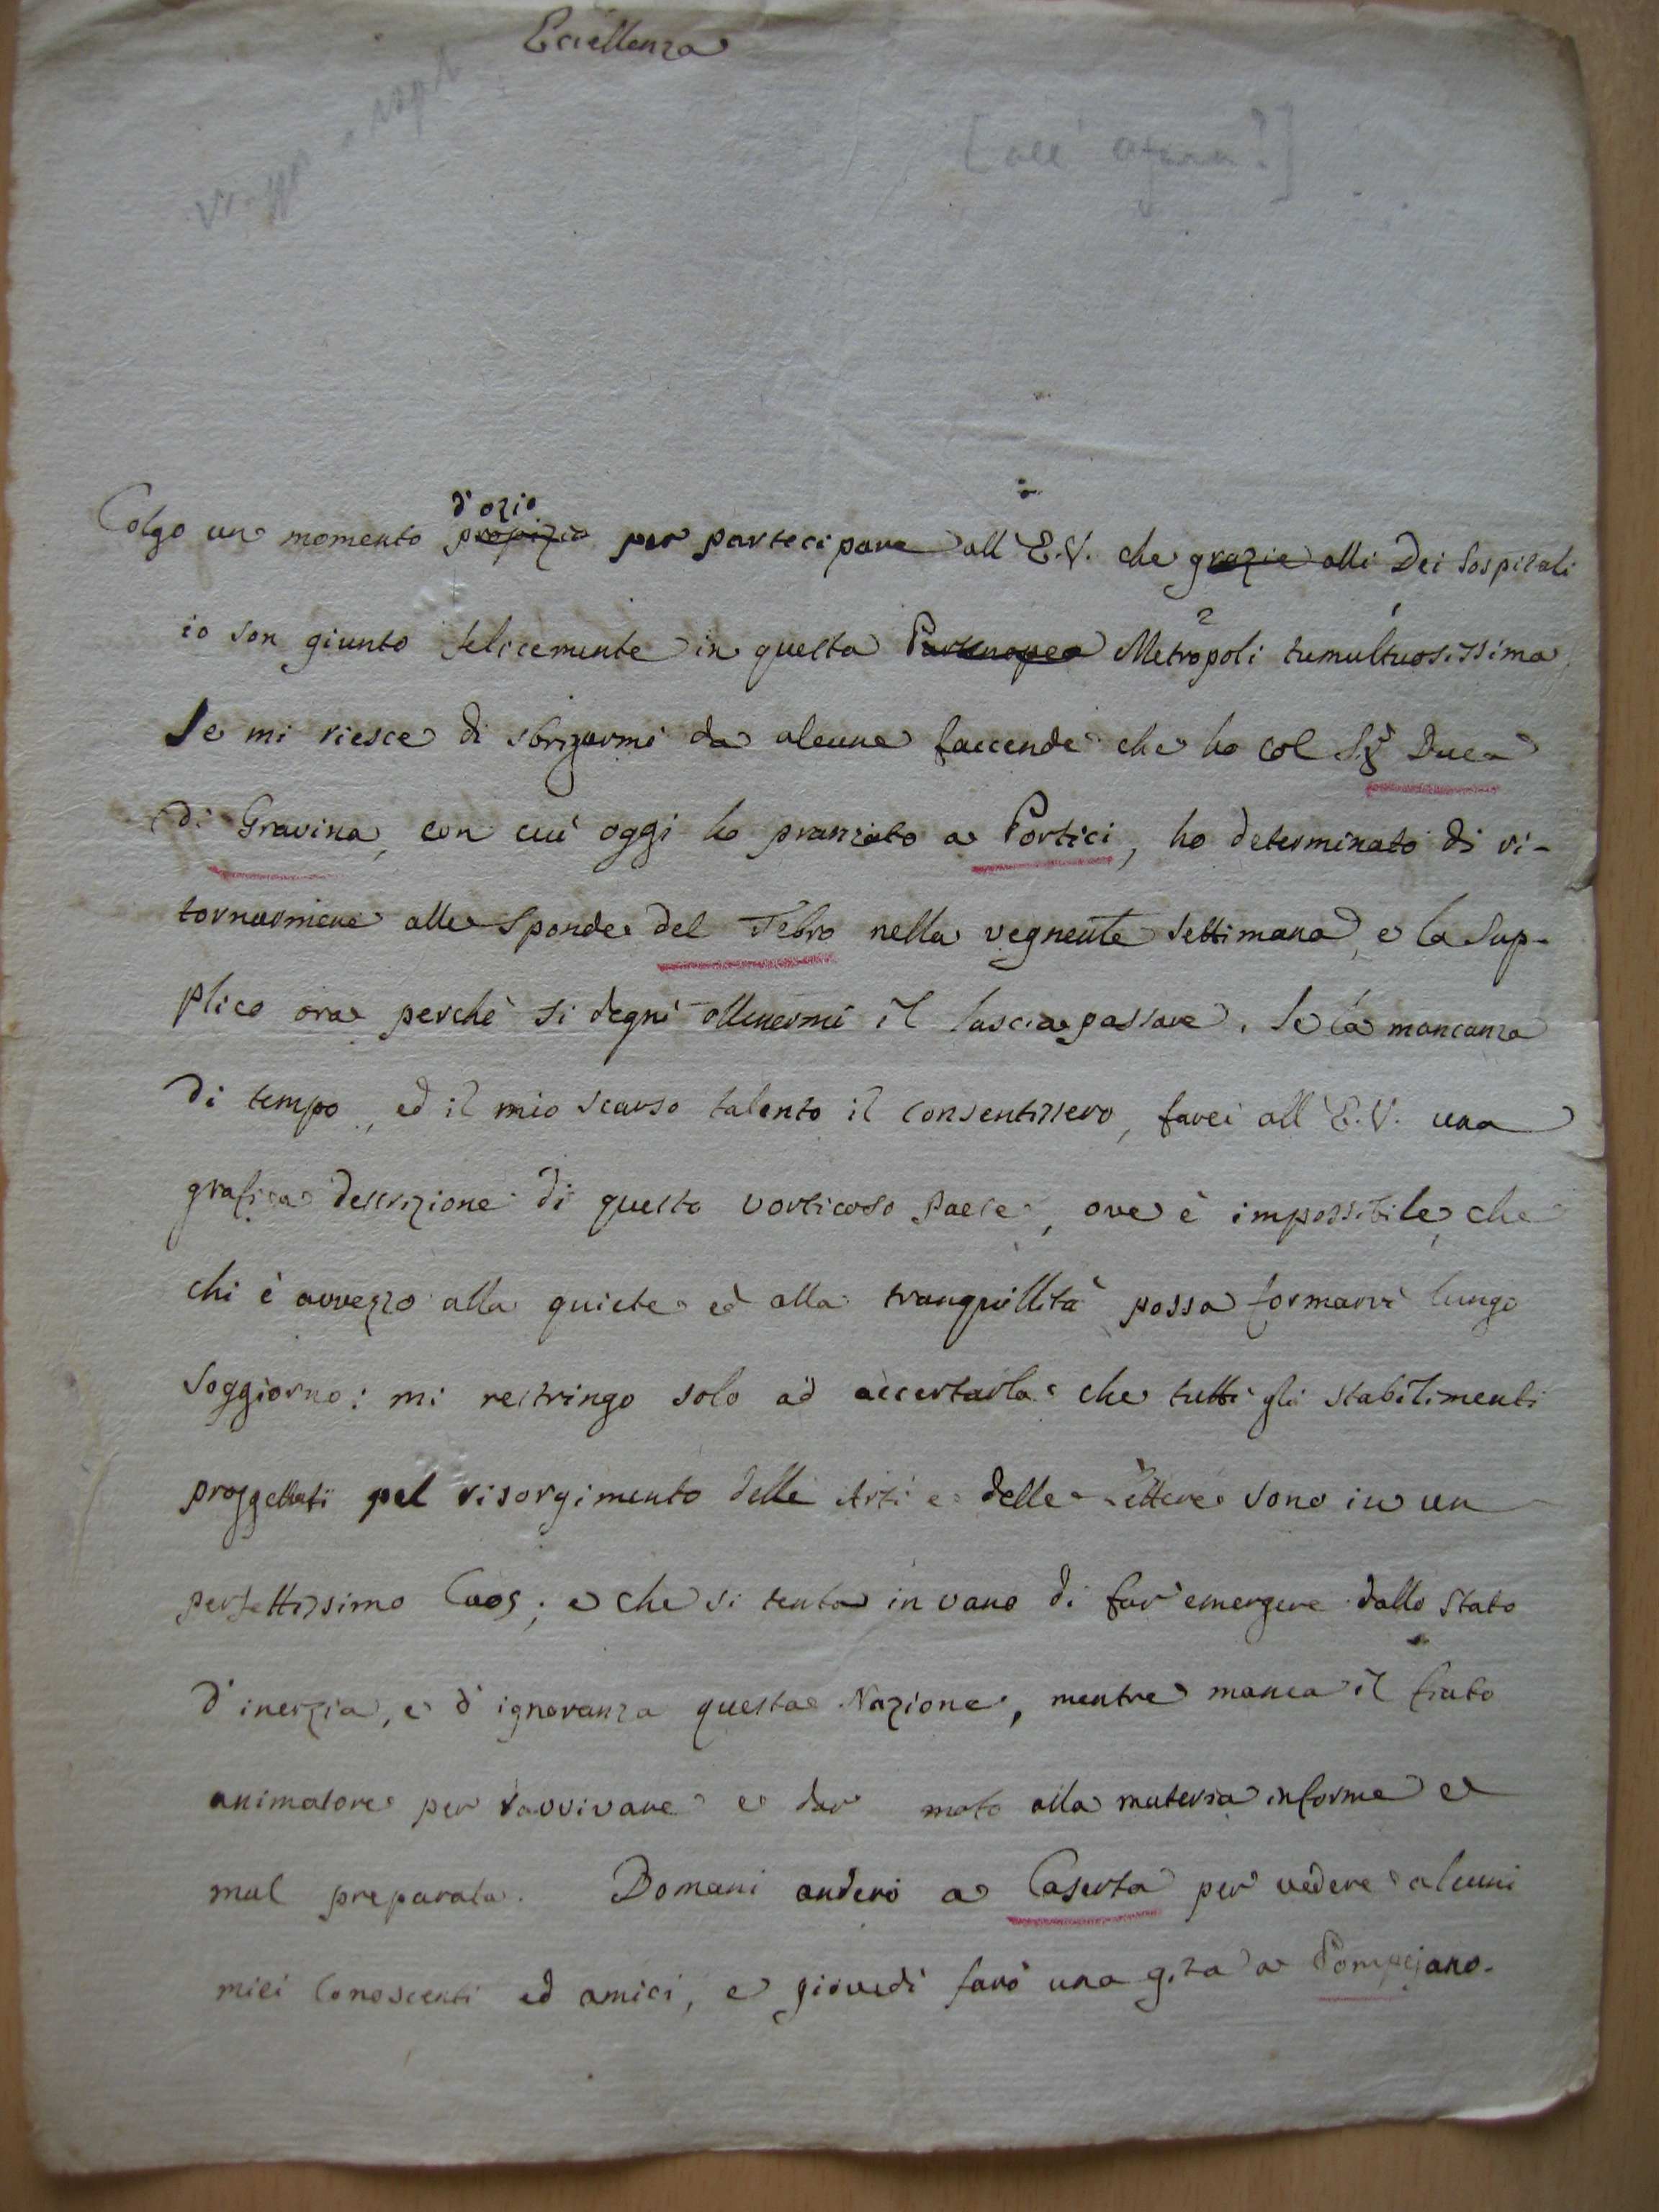 Eccellenza
[all' Azara?]
d'ozio
Colgo un momento propizio per partecipare all'E.V. che grazie alli Dei Sospitali
2 1
io son giunto felicemente in questa Partenopea Metropoli tumultuosissima
Se mi riesce di sbrigarmi da alcune faccende che ho col Sigr Duca
di Gravina, con cui oggi ho pranzato a Portici, ho determinato di ri-
tornarmene alle sponde del Tebro nella vegnente settimana, e la sup-
plico ora perchè si degni ottenermi il lascia passare. Se la mancanza
di tempo, ed il mio scarso talento il consentissero, farei all'E.V. una
grafica descrizione di questo vorticoso Paese, ove è impossibile, che
chi è avvezzo alla quiete ed alla tranquillità possa formarvi lungo
soggiorno: mi restringo solo ad accertarla che tutti gli stabilimenti
proggettati pel risorgimento delle Arti e delle Lettere sono in un
perfettissimo Caos; e che si tenta in vano di far emergere dallo stato
d'inerzia, e d'ignoranza questa Nazione, mentre manca il fiato
animatore per ravvivare e dar moto alla materia informe e
mal preparata. Domani anderò a Caserta per vedere alcuni
miei conoscenti ed amici, e giovedì farò una gita a Pompejano.